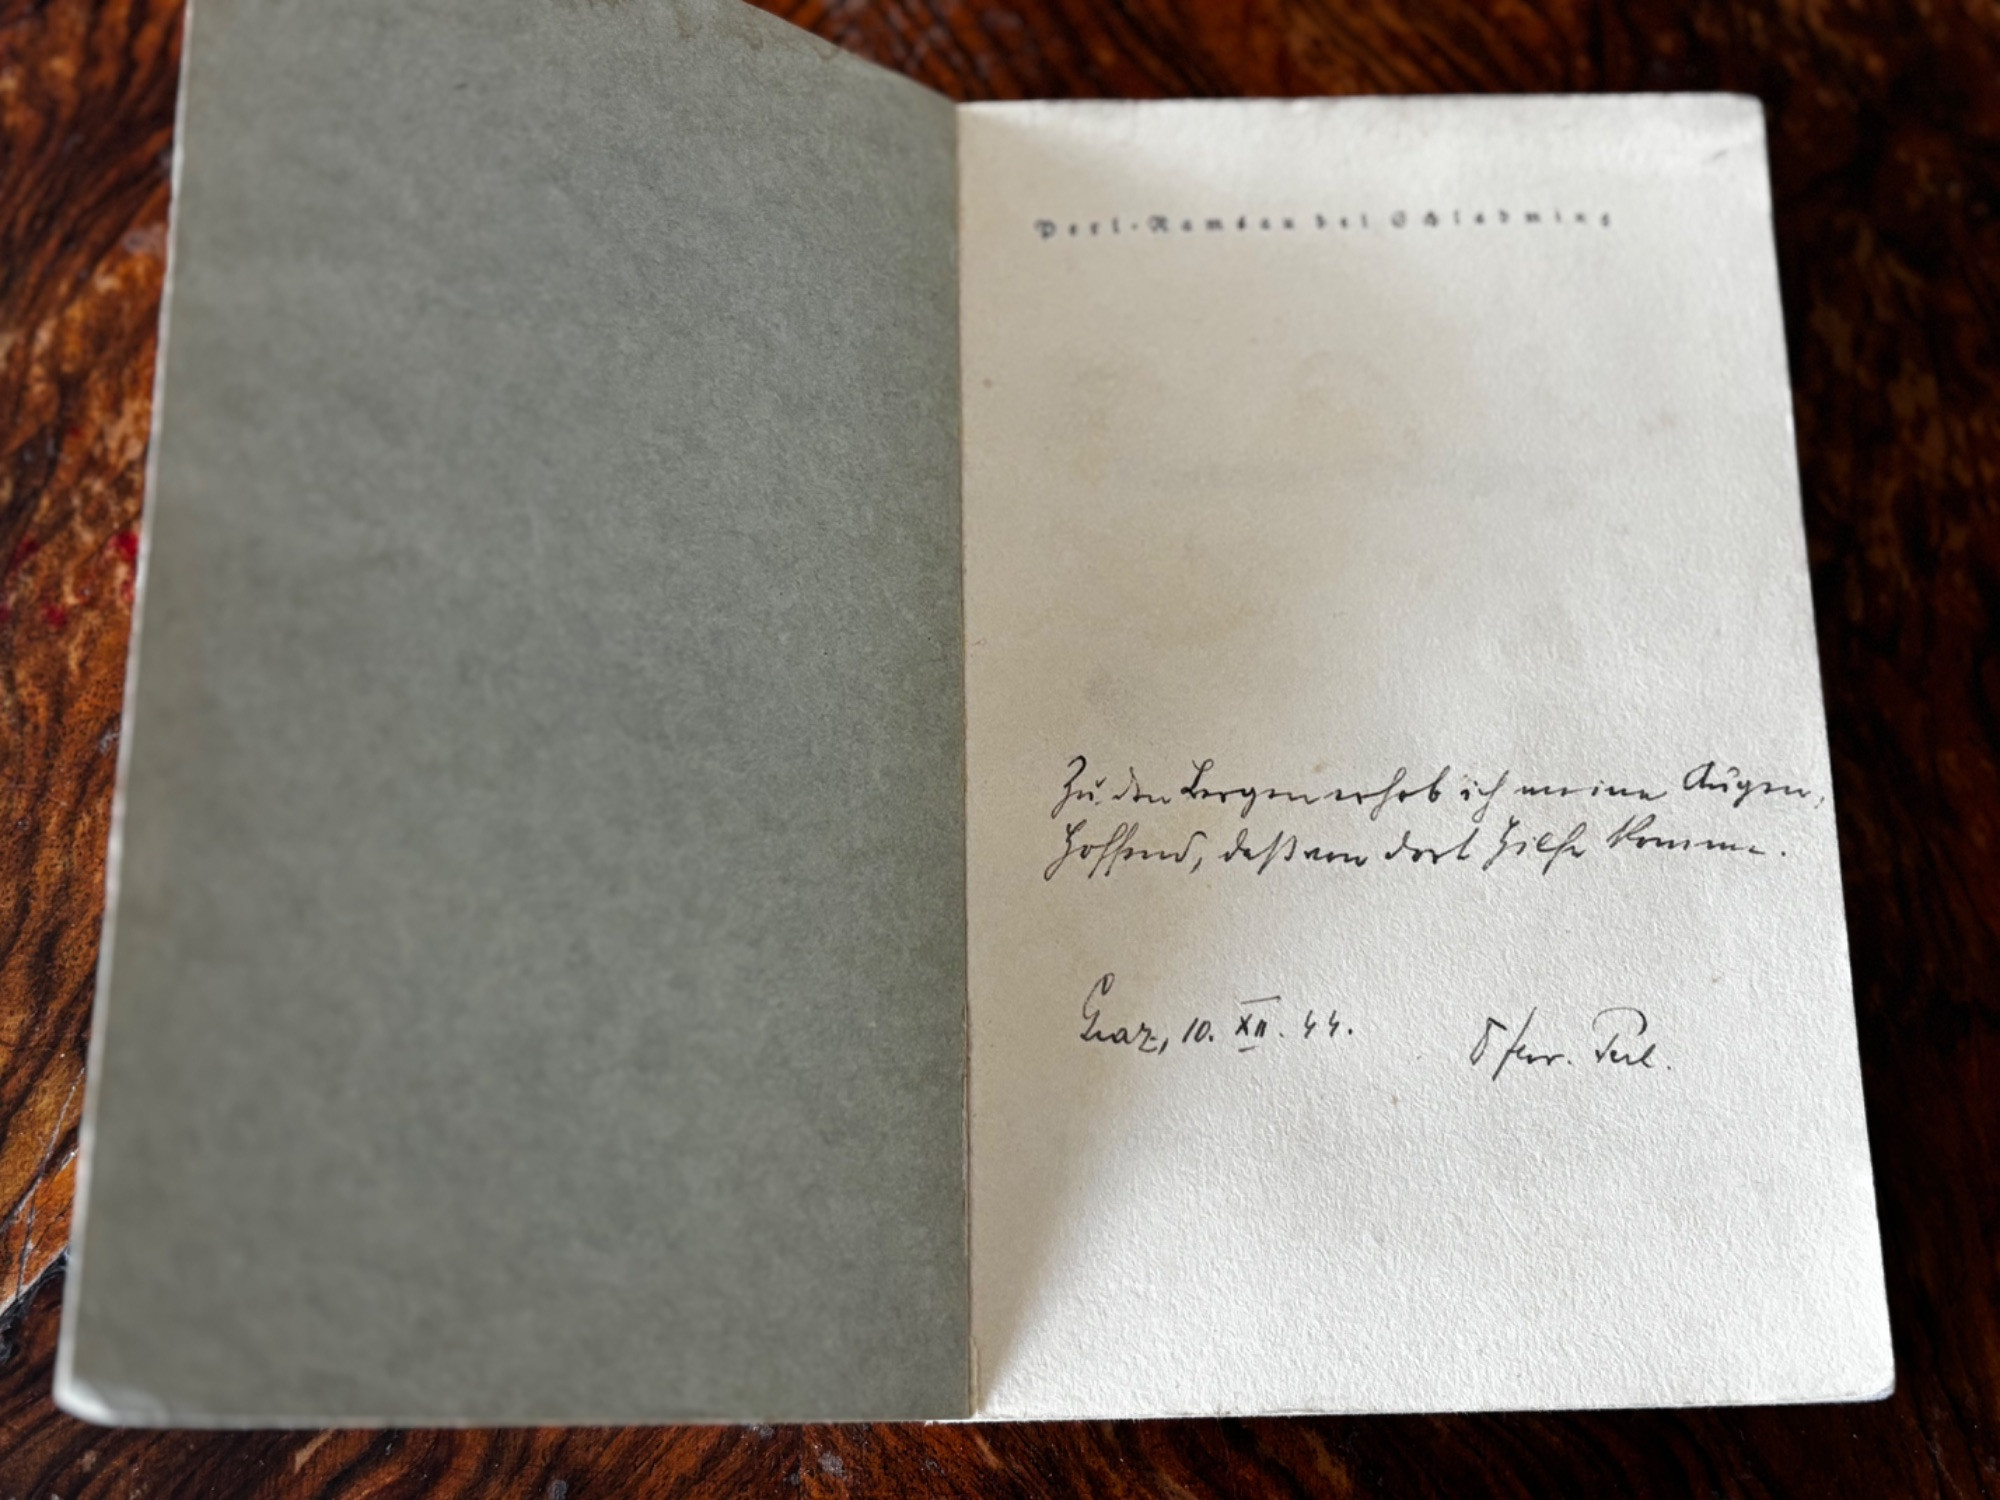 Perl-Ramsau bei Schladming
Zu den Bergen erhob ich meine Augen,
hoffend, daß von dort Hilfe komme.
Graz, 10. XII. 44.
Perl.